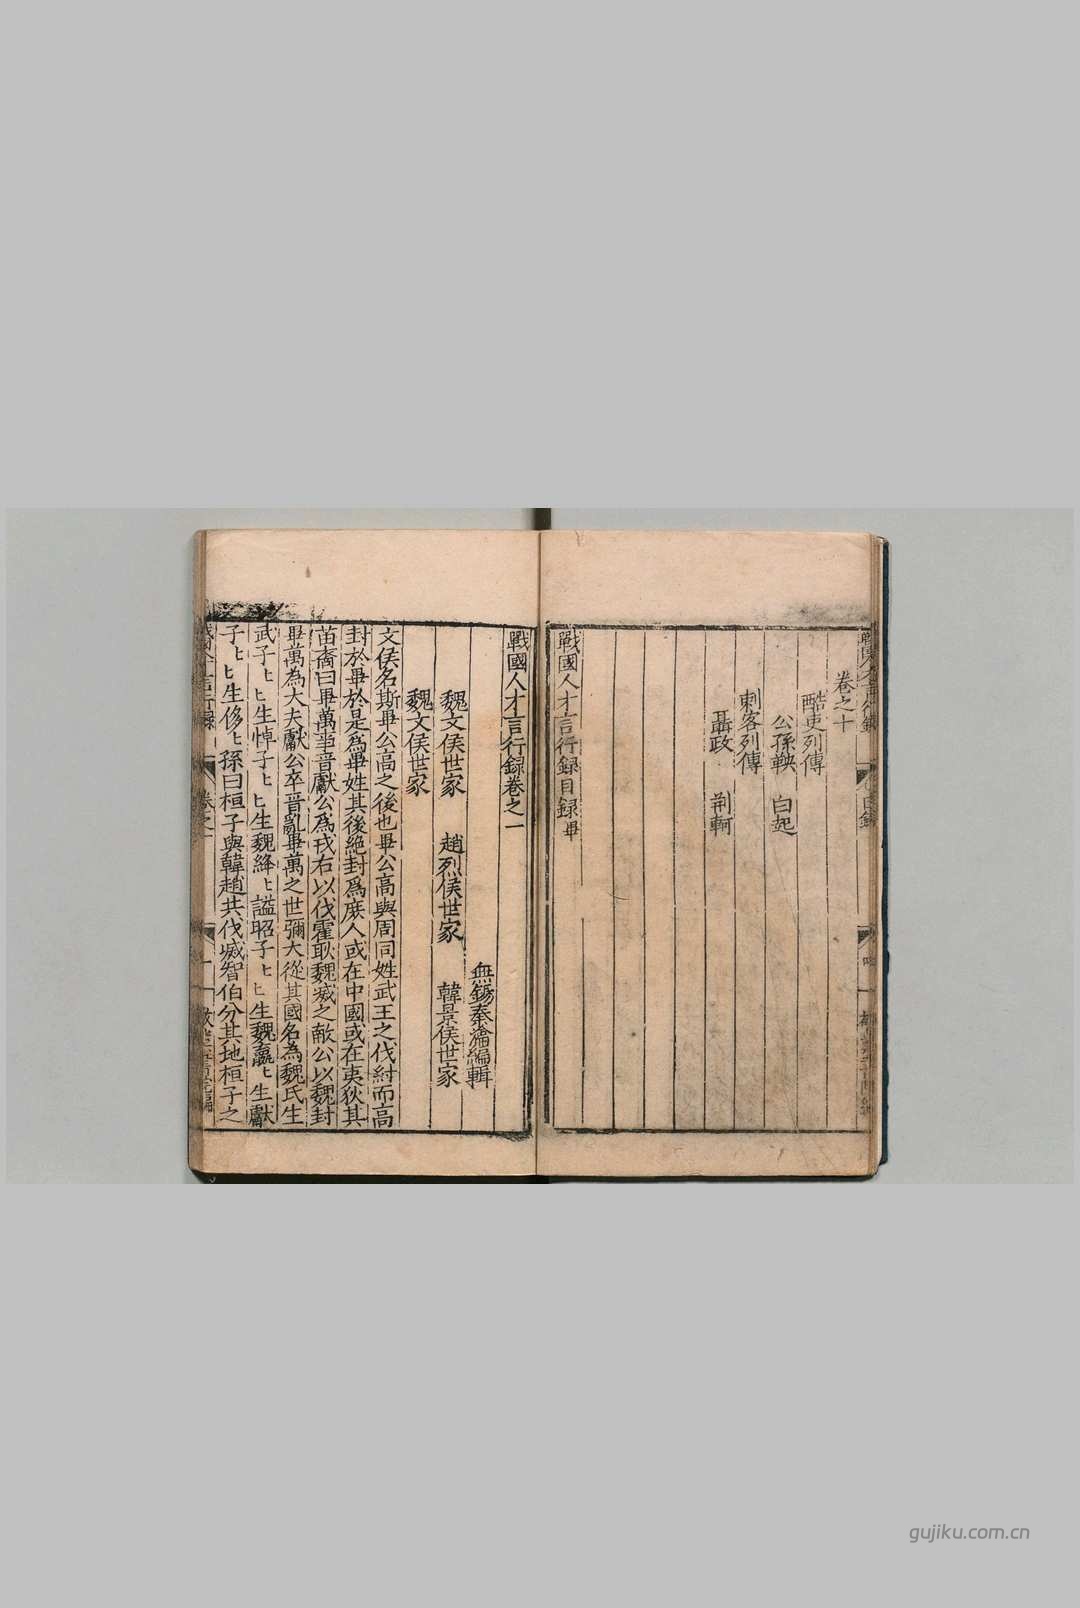 卷之十
酷吏列傳
公孫鞅 白起
刺客列傳
聶政 荆軻
戰國人才言行録目録畢
戰國人才言行録卷之一
無錫秦瀹編輯
魏文侯世家 趙烈侯世家 韓景侯世家
魏文侯世家
文侯名斯畢公高之後也畢公高與周同姓武王之伐紂而高
封於畢於是爲畢姓其後絶封爲庶人或在中國或在夷狄其
苗裔曰畢萬事晉獻公爲戎右以伐霍耿魏滅之獻公以魏封
畢萬為大夫獻公卒晉亂畢萬之世彌大從其國名為魏氏生
武子〻〻生悼子〻〻生魏絳〻謚昭子〻〻生魏嬴〻生獻
子〻〻生侈〻孫曰桓子與韓趙共伐滅智伯分其地桓子之
卷之一
gujiku.com.cn